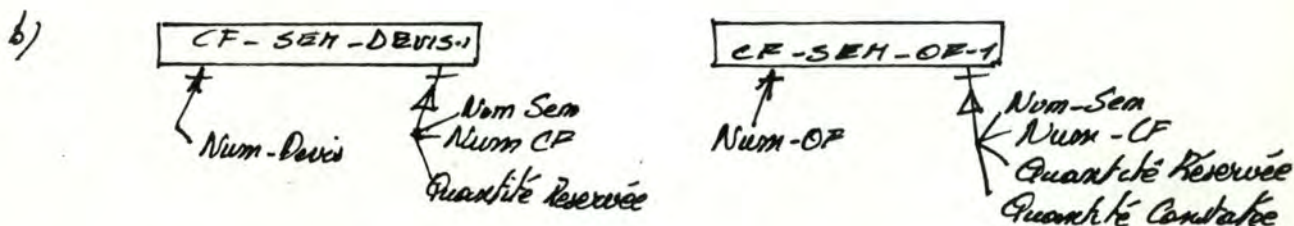 b)
CF-SEM-DEVIS-1
CF-SEM-OF-1
Num-Devis
Num Sem
Num CF
Quantité Reservée
Num-OF
Num-Sem
Num-CF
Quantité Réservée
Quantité Constatée